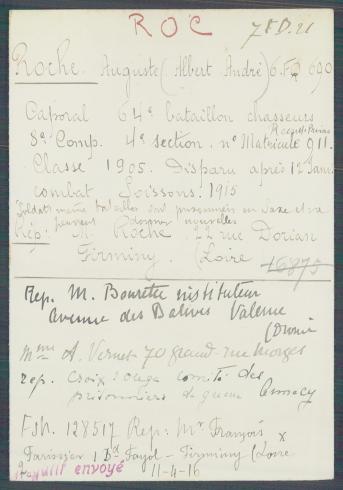 ROC
Roche. Auguste (Albert André) 6.F.
Caporal 64e bataillon chasseurs
8e Comp. 4e section. no Matricule 011.
Classe 1905. Disparu après 12 Janv.
combat Soissons. 1915
Soldats même bataillon sont prisonniers en Saxe et
peuvent donner nouvelles
Rép. M. Roche. 22 rue Dorian
Firminy. (Loire 16875
Rep. M. Bourette instituteur
avenue des Valence
(Drome
Mme A. Vernet 70 grand-rue Morges
rep. Croix rouge comité des
prisonniers de guerre Annecy
Fsh. 128517 Rep: Mr François
1 Bd Fayol - Firminy (Loire
envoyé 11-4-16